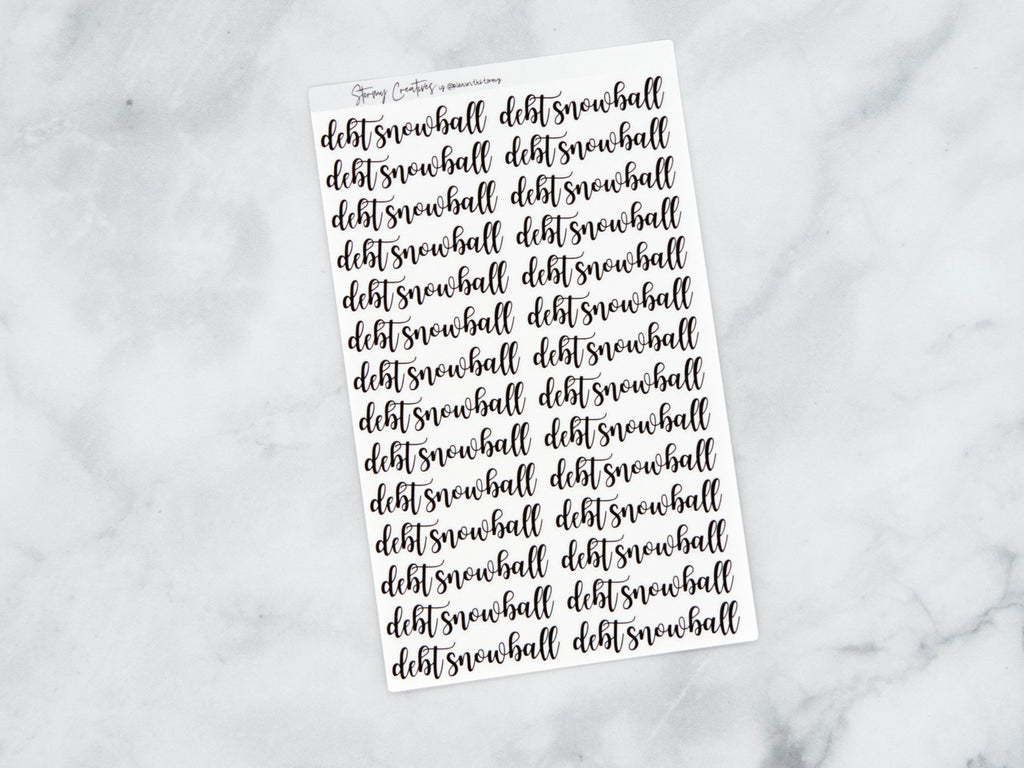 Stormy Creatives ig @planwithstormy
debt snowball debt snowball
debt snowball debt snowball
debt snowball debt snowball
debt snowball debt snowball
debt snowball debt snowball
debt snowball debt snowball
debt snowball debt snowball
debt snowball debt snowball
debt snowball debt snowball
debt snowball debt snowball
debt snowball debt snowball
debt snowball debt snowball
debt snowball debt snowball
debt snowball debt snowball